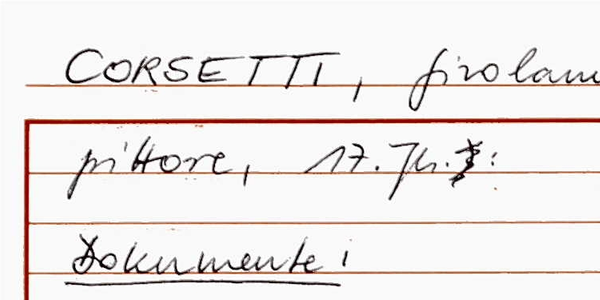 CORSETTI, Girolam
pittore, 17. Jh.:
Dokumente: